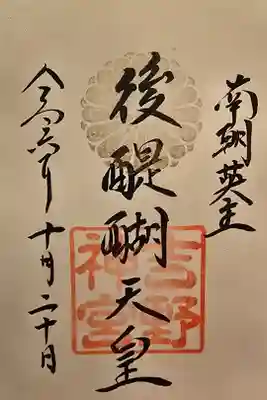 南朝英主
後醍醐天皇
吉野
神宮
令和六年 十月二十日